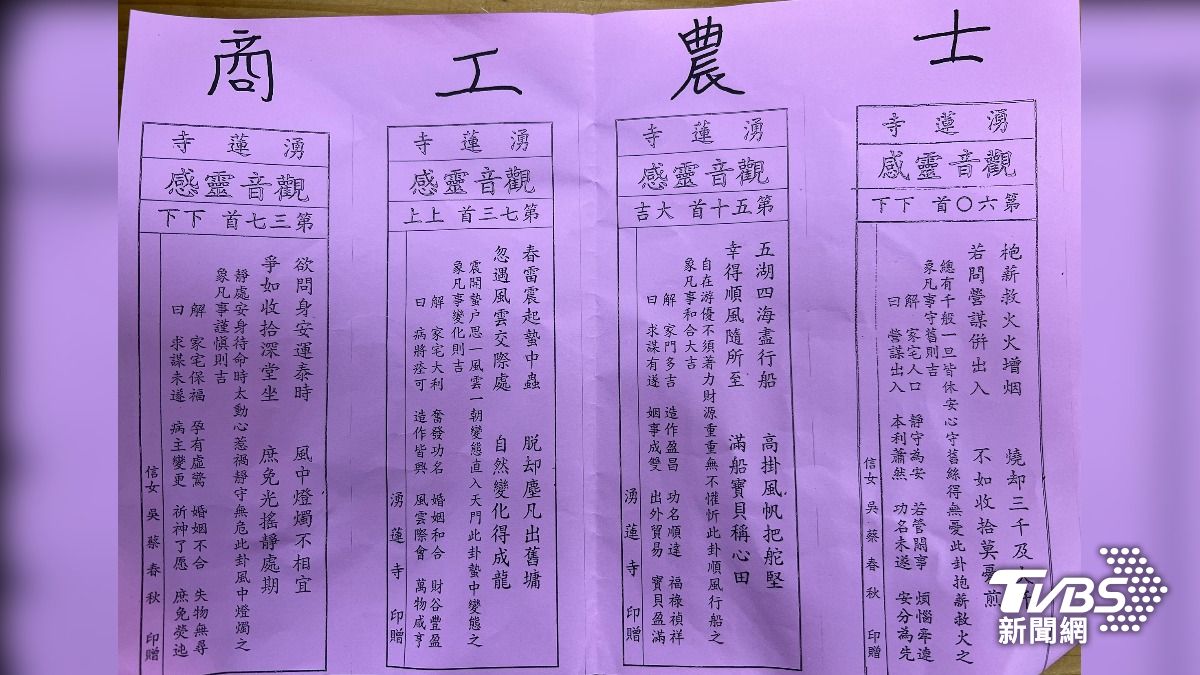 士
湧蓮寺
觀音靈感
第六〇首 下下
抱薪救火火增烟 燒却三千及
若問營謀併出入 不如收拾莫憂煎
總有千般一旦皆休安心守舊終得無憂此卦抱薪救火之
象凡事守舊則吉
解 家宅人口 靜守為安 若管閒事 煩惱牽遶
曰 營謀出入 本利蕭然 功名未遂 安分為先
信女 吳蔡春秋 印贈
農
湧蓮寺
觀音靈感
第五十首 大吉
五湖四海盡行船 高掛風帆把舵堅
幸得順風隨所至 滿船寶貝稱心田
自在游優不須著力財源重重無不懽忻此卦順風行船之
象凡事和合大吉
解 家門多吉 造作盈昌 功名順達 福祿禎祥
曰 求謀有遂 姻事成雙 出外貿易 寶貝盈滿
湧蓮寺 印贈
工
湧蓮寺
觀音靈感
第七三首 上上
春雷震起蟄中蟲 脫却塵凡出舊墉
忽遇風雲交際處 自然變化得成龍
震開蟄户思一風雲一朝變態直入天門此卦蟄中變態之
象凡事變化則吉
解 家宅大利 奮發功名 婚姻和合 財谷豐盈
曰 病將痊可 造作皆興 風雲際會 萬物咸亨
湧蓮寺 印贈
商
湧蓮寺
觀音靈感
第三七首 下下
欲問身安運泰時 風中燈燭不相宜
爭如收拾深堂坐 庶免光搖靜處期
靜處安身待命時太動心惹禍靜守無危此卦風中燈燭之
象凡事謹慎則吉
解 家宅保福 孕有虛驚 婚姻不合 失物無尋
曰 求謀未遂 病主變更 祈神了愿 庶免熒迍
信女 吳蔡春秋 印贈
TVBS
新聞網